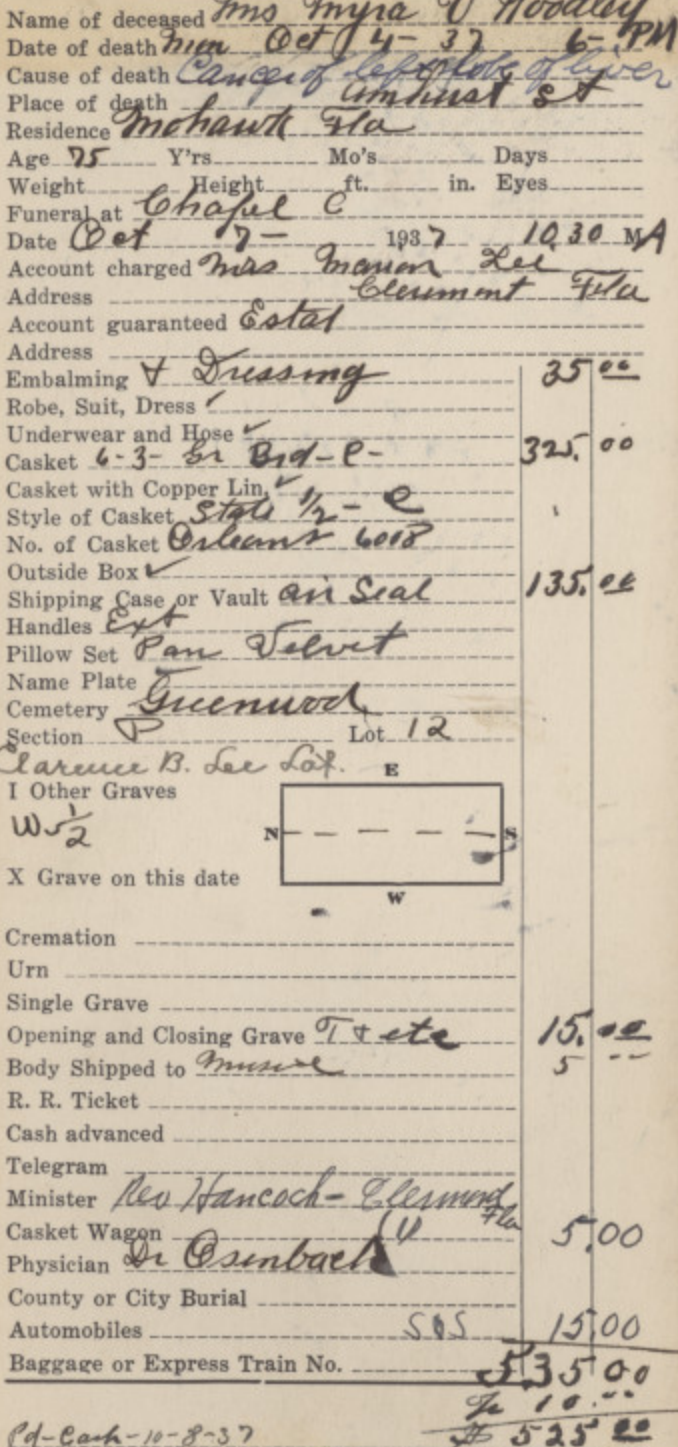 Name of deceased Mrs Myra V Hoodley
Date of death Mon Oct 4 - 37 6 - PM
Cause of death Cancer of left lobe of liver
Place of death Amhurst St
Residence Mohawk Fla
Age 75 Y'rs Mo's Days
Weight Height ft. in. Eyes
Funeral at Chapel C
Date Oct 7 - 1937 10 30 M A
Account charged Mrs Marion Lee
Address Clermont Fla
Account guaranteed Estat
Address
Embalming & Dressing 35 00
Robe, Suit, Dress ✓
Underwear and Hose ✓
Casket 6-3- Gr Brd-C- 325. 00
Casket with Copper Lin. ✓
Style of Casket State 1/2 - C
No. of Casket Orleans 6018
Outside Box ✓
Shipping Case or Vault air Seal 135. 00
Handles Ext
Pillow Set Pan Velvet
Name Plate
Cemetery Greenwood
Section P Lot 12
Clarence B. Lee Lot.
I Other Graves
W 1/2
X Grave on this date
E
N S
W
Cremation
Urn
Single Grave
Opening and Closing Grave T & etc 15. 00
Body Shipped to Music 5 --
R. R. Ticket
Cash advanced
Telegram
Minister Rev Hancock - Clermont Fla
Casket Wagon 5.00
Physician Dr Osenbach
County or City Burial
Automobiles S&S 15.00
Baggage or Express Train No. 535 00
10.00
$ 525 00
Pd-Cash-10-8-37